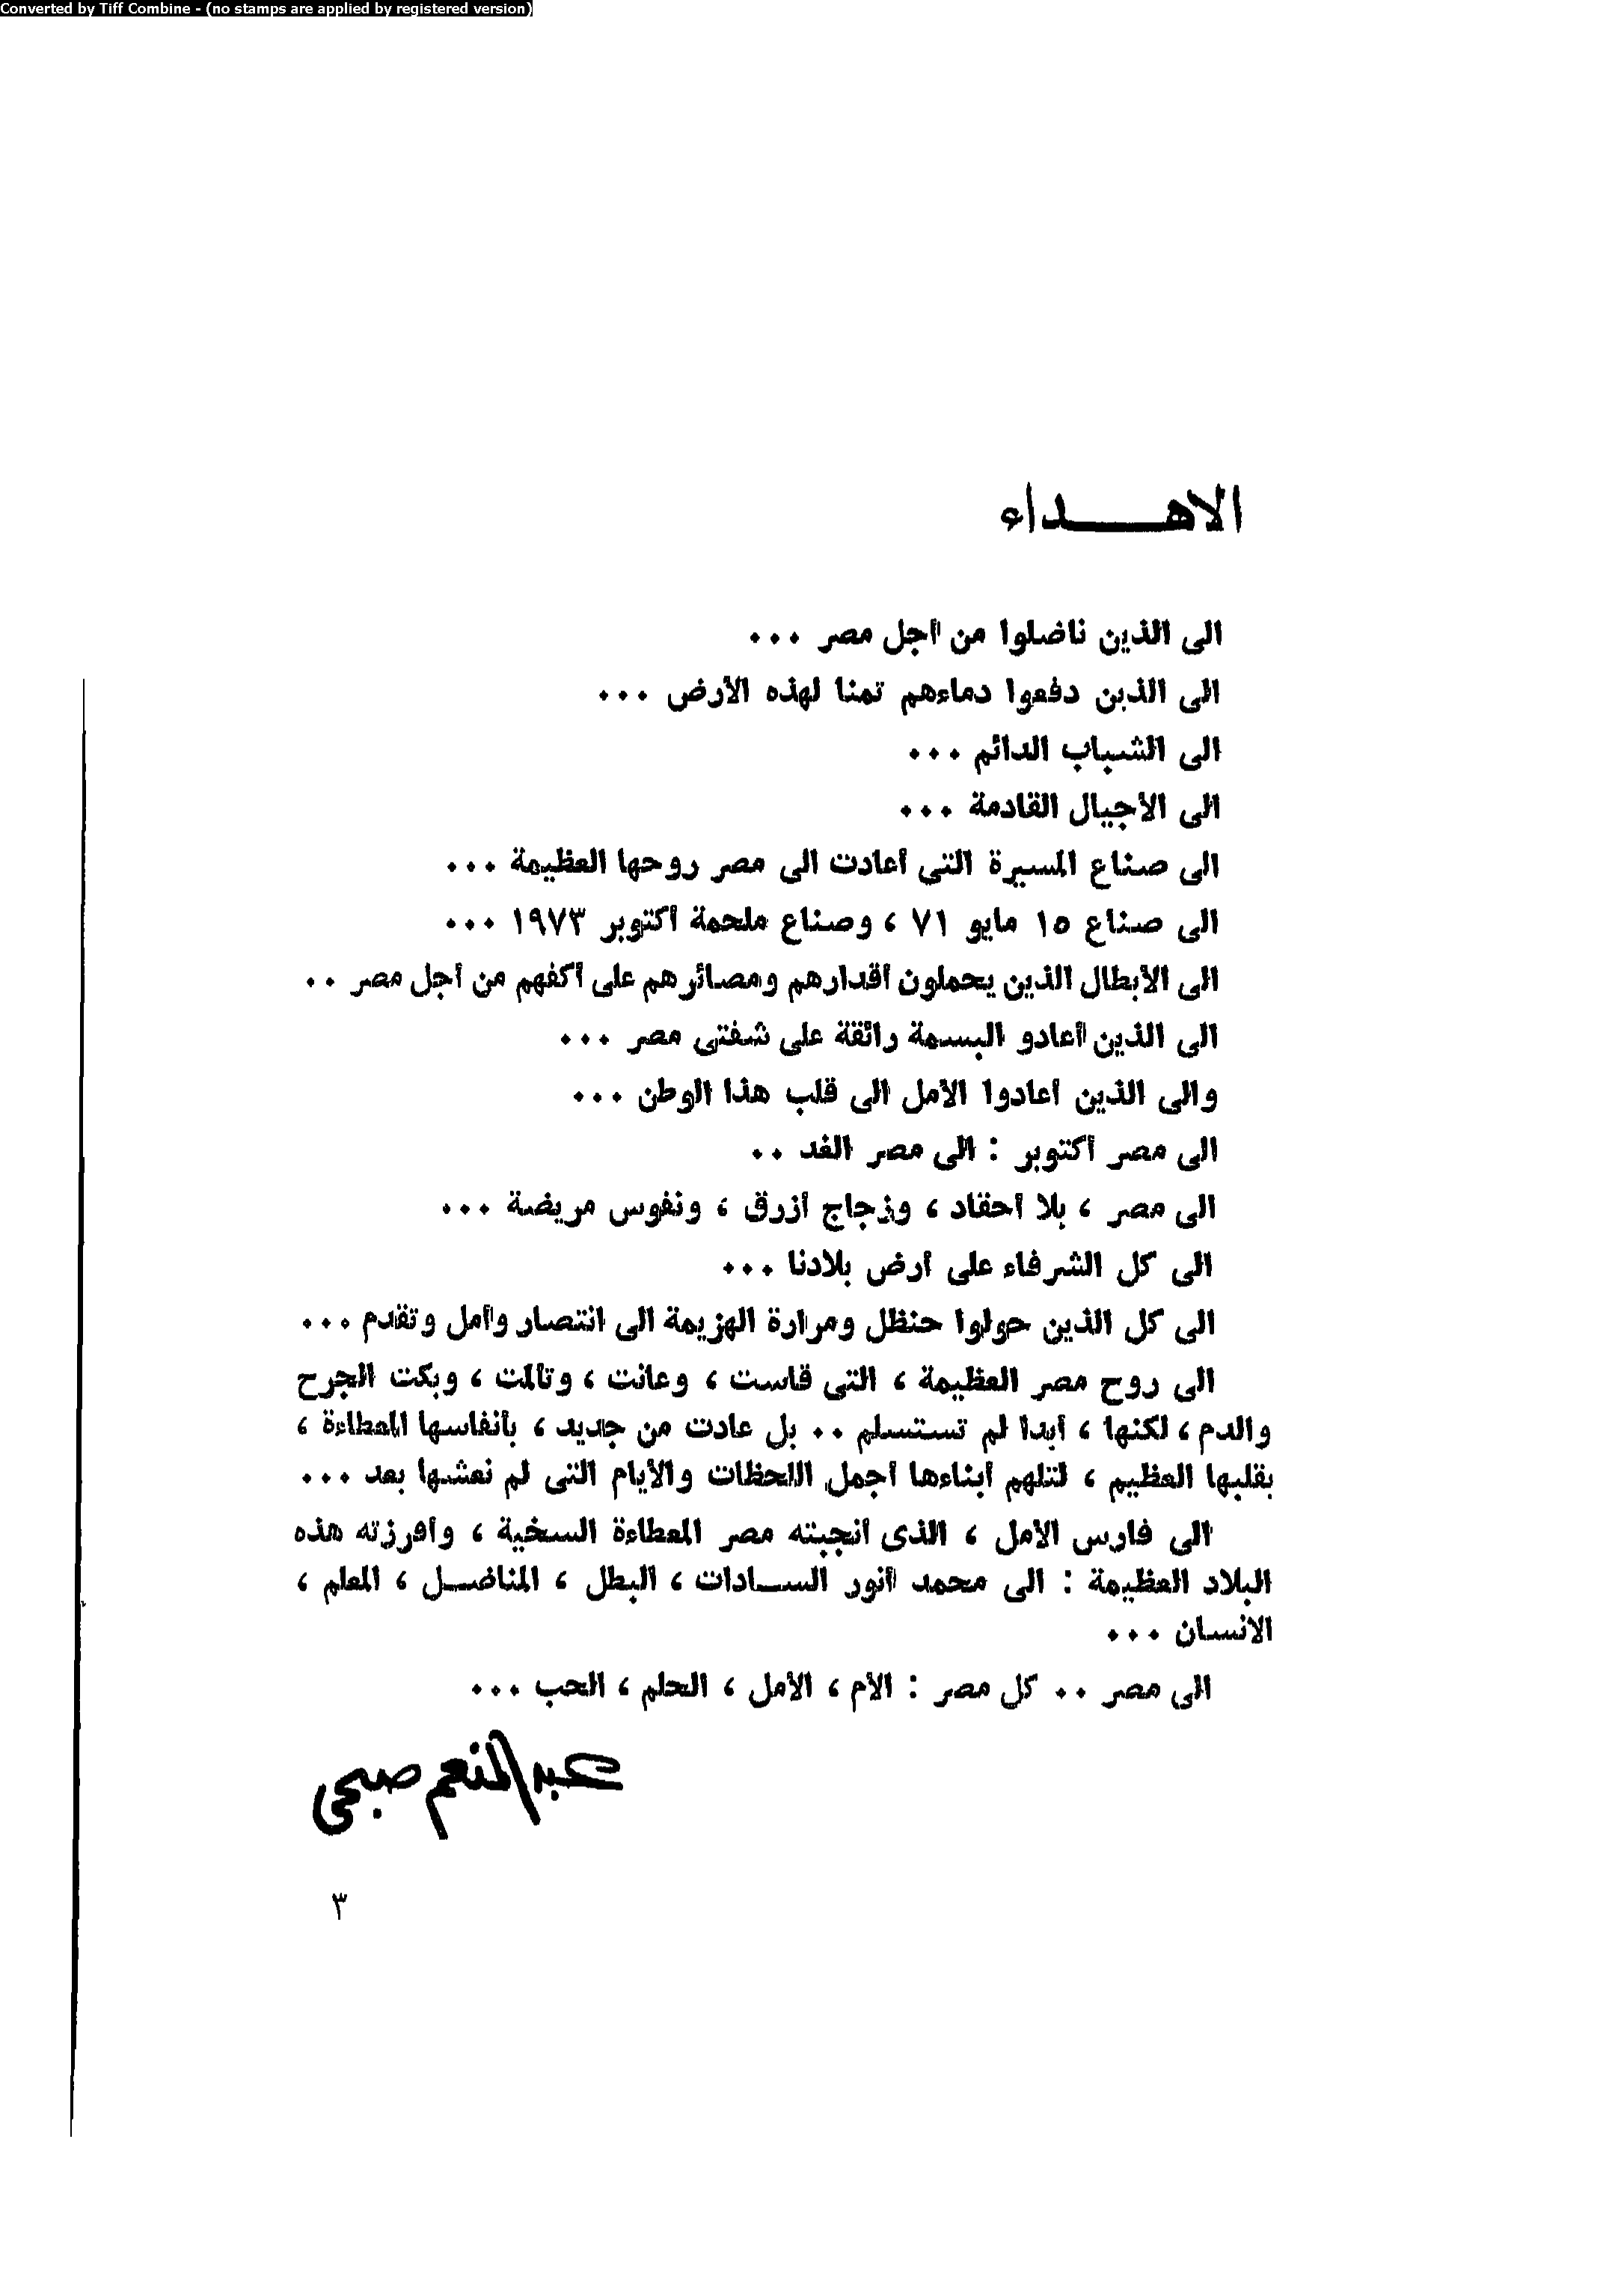 Converted by Tiff Combine - (no stamps are applied by registered version)
الاهـــداء
الى الذين ناضلوا من أجل مصر ...
الى الذين دفعوا دماءهم ثمنا لهذه الأرض ...
الى الشباب الدائم ...
الى الأجيال القادمة ...
الى صناع المسيرة التى أعادت الى مصر روحها العظيمة ...
الى صناع ١٥ مايو ٧١ ، وصناع ملحمة أكتوبر ١٩٧٣ ...
الى الأبطال الذين يحملون أقدارهم ومصائرهم على أكفهم من أجل مصر ..
الى الذين أعادو البسمة رائقة على شفتى مصر ...
والى الذين أعادوا الأمل الى قلب هذا الوطن ...
الى مصر أكتوبر : الى مصر الغد ..
الى مصر ، بلا أحقاد ، وزجاج أزرق ، ونفوس مريضة ...
الى كل الشرفاء على أرض بلادنا ...
الى كل الذين حولوا حنظل ومرارة الهزيمة الى انتصار وأمل وتقدم ...
الى روح مصر العظيمة ، التى قاست ، وعانت ، وتألمت ، وبكت الجرح
والدم ، لكنها ، أبدا لم تستسلم .. بل عادت من جديد ، بأنفاسها المعطاءة ،
بقلبها العظيم ، لتلهم أبناءها أجمل اللحظات والأيام التى لم نعشها بعد ...
الى فارس الأمل ، الذى أنجبته مصر المعطاءة السخية ، وأفرزته هذه
البلاد العظيمة : الى محمد أنور الســادات ، البطل ، المناضــل ، المعلم ،
الانسان ...
الى مصر .. كل مصر : الأم ، الأمل ، الحلم ، الحب ...
عبد المنعم صبحى
٣